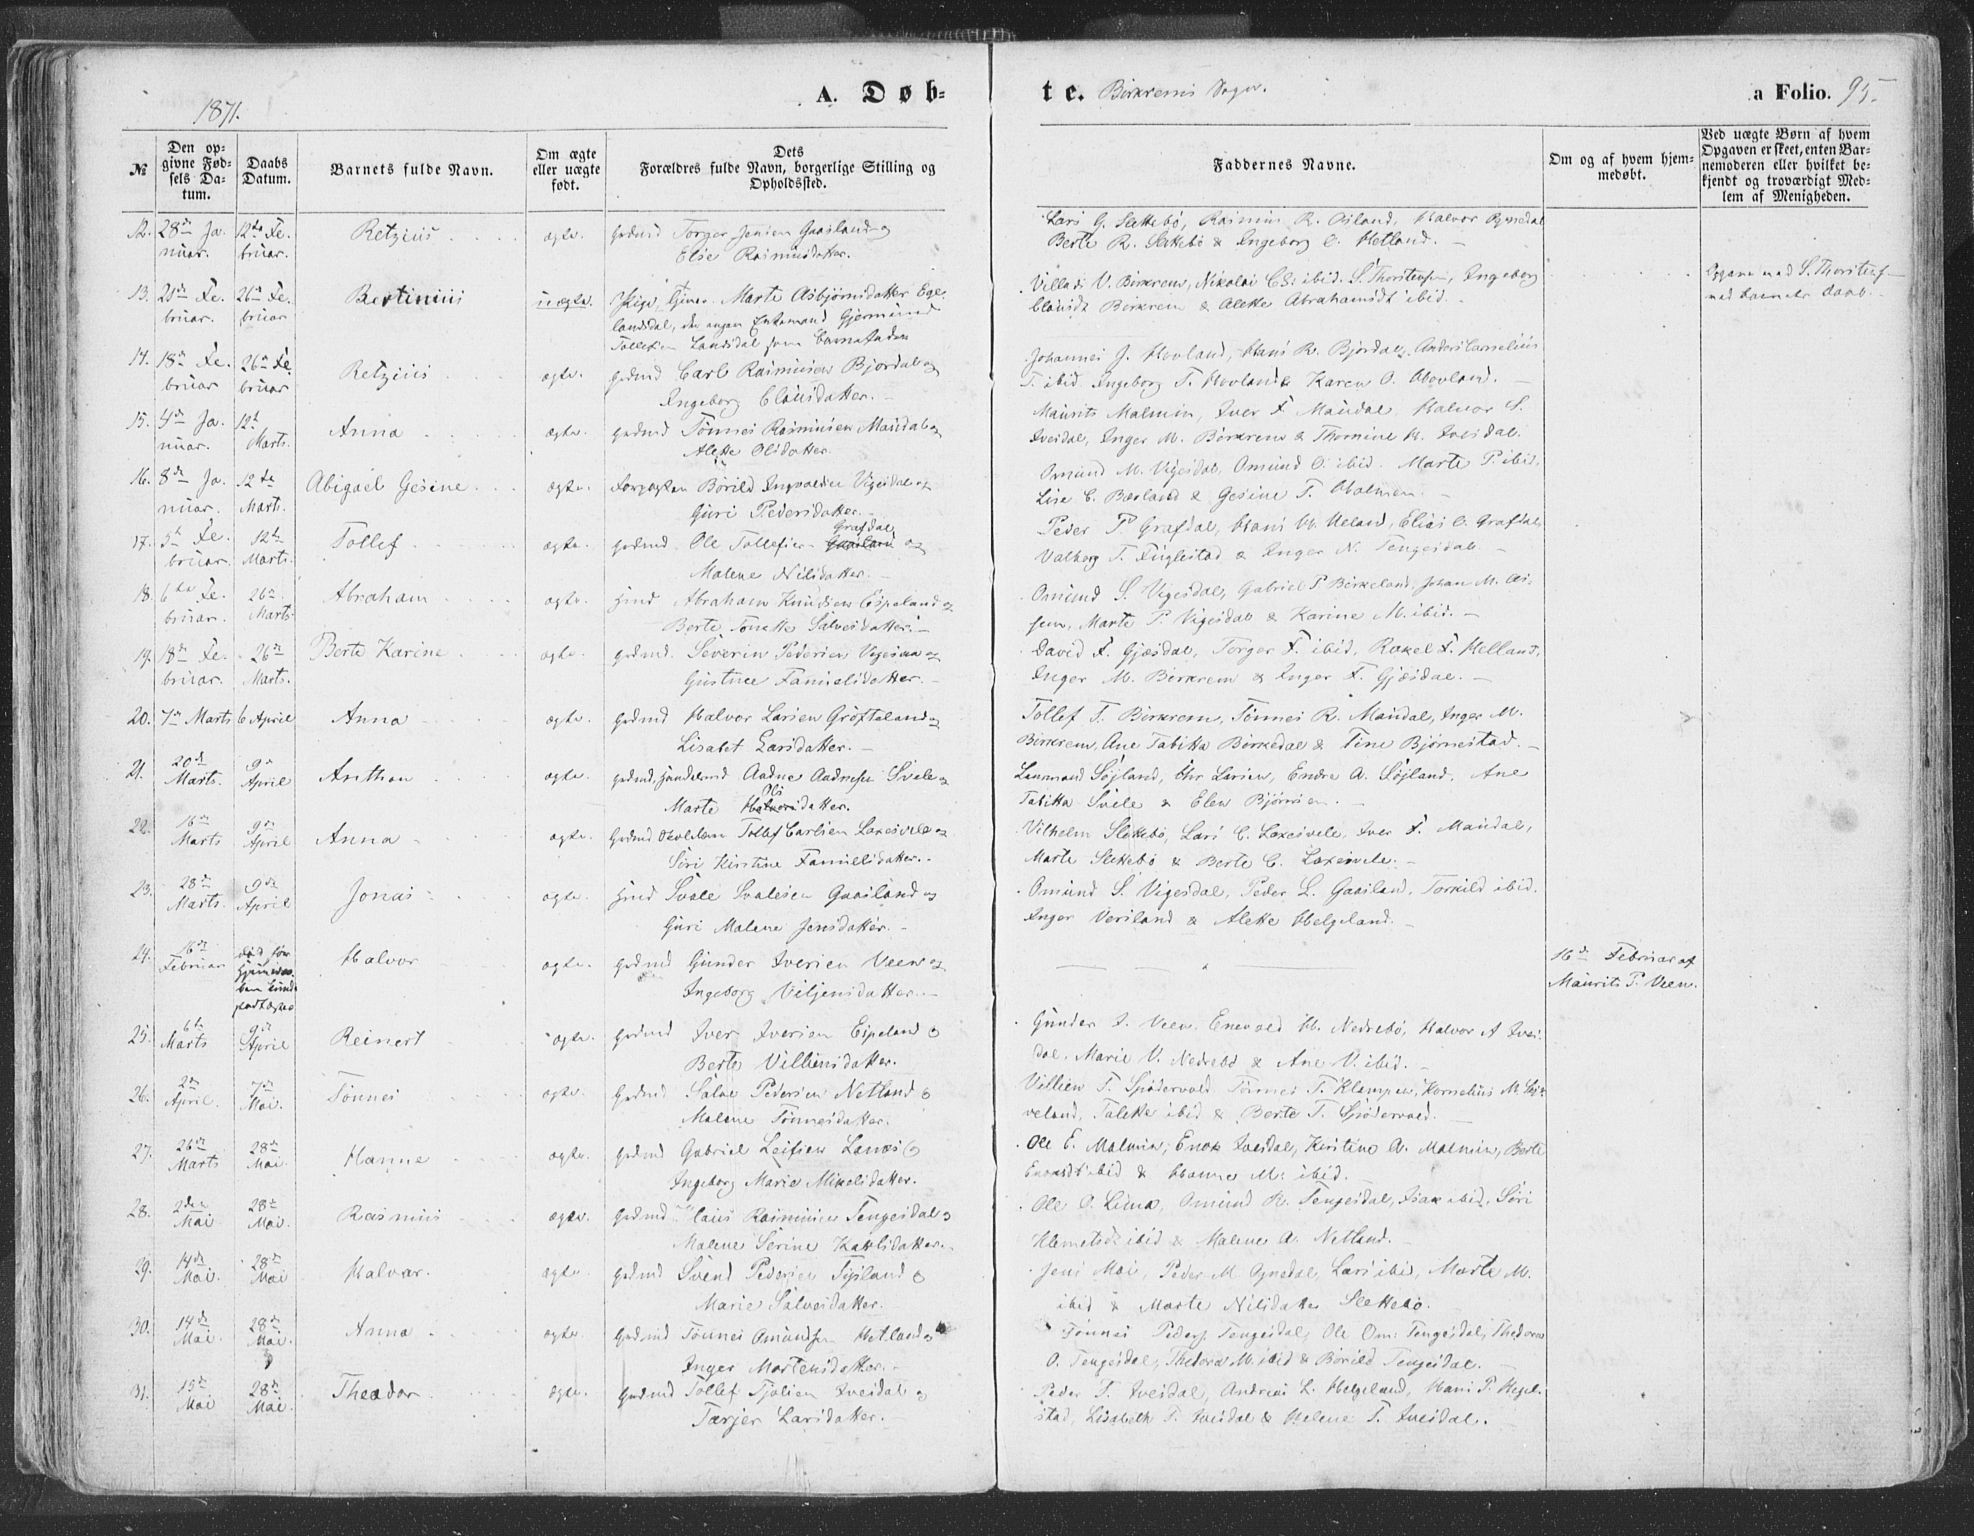 1871.
A. Døb-
te. Birkrems Sogn.
a Folio. 95.
№
Den opgivne Fødsels Datum.
Daabs Datum.
Barnets fulde Navn.
Om ægte eller uægte født.
Dets Forældres fulde Navn, borgerlige Stilling og Opholdssted.
Faddernes Navne.
Om og af hvem hjemmedøbt.
Ved uægte Børn af hvem Opgaven er skeet, enten Barnemoderen eller hvilket bekjendt og troværdigt Medlem af Menigheden.
12. 28de Januar. 12te Februar. Retzius ægte. Gdmd Torger Jensen Gaasland og
Elise Rasmusdatter.
Lars G. Slettebø, Rasmus R. Osland, Halvor
Berte R. Slettebø & Ingeborg C. Hetland.
13. Februar. 26de Februar Bertinius uægte. Pige Marte Asbjørnsdatter Egelandsdal, Gjermund
Tollefsen Landsdal som Barnefader
Villads V. Birkrem, Nikolai ibid. S. Thorstensen, Ingeborg
Clausdt Birkrem & Alette Abrahamsdt ibid.
14. 18de Februar 26de Februar Retzius ægte. Gdmd Carl Rasmusen Bjordal og
Ingeborg Clausdatter.
Johannes J. Hovland, Hans R. Bjordal, Anders Cornelius
T. ibid Ingeborg T. Hovland & Karen O. Hovland.
15. 4de Januar. 12te Marts. Anna ægte. Gdmd Tønnes Rasmusen Maudal og
Alette Olsdatter
Maurits Malmin, Iver F. Maudal, Halvor S.
Ivesdal, Inger M. Birkrem & Thomine H. Ivesdal.
16. 8de Januar. 12te Marts. Abigael Gesine ægte. Forpagter Børild Ingvaldsen Vigesdal og
Guri Pedersdatter.
Omund M. Vigesdal, Omund O. ibid. Marte P. ibid.
Lise C. Bærland & Gesine T. Holmen.
17. 5te Februar. 12te Marts. Tollef ægte. Gdmd Ole Tollefsen Grafdal og
Malene Nilsdatter.
Peder P Grafdal, Hans M. Ueland, Elias O. Grafdal
Valborg T. Fuglestad & Inger N. Tengesdal.
18. 6te Februar. 26de Marts Abraham ægte. Hmd Abraham Knudsen Espeland og
Berte Tonette Salvesdatter.
Omund S. Vigesdal, Gabriel P Birkeland, Johan M.
Marte P. Vigesdal & Karine M. ibid.
19. 18de Februar. 26de Marts. Berte Karine ægte. Gdmd. Severin Pedersen Vegesaa og
Gustave Samuelsdatter.
David F. Gjæsdal, Torger F. ibid, Rakel F. Helland,
Inger M. Birkrem & Inger F. Gjæsdal.
20. 7de Marts 6 April Anna ægte. Gdmd Halvor Larsen Grøfteland og
Lisabet Larsdatter.
Tollef T. Birkrem, Tønnes R. Maudal, Inger M.
Birkrem, Ane Tabitta Birkedal & Tine Bjørnestad.
21. 20de Marts. 9de April Anthon ægte. Gdmd, Handelsmd Aadne Aadnesen Svele og
Marte Olsdatter.
Lensmand Søjland, Chr Larsen, Endre A. Søjland, Ane
Tabitta Svele & Elen Bjørnsen.
22. 16de Marts 9de April Anna ægte. Gdmd Tollef Carlsen Laxesvele og
Siri Kirstine Samuelsdatter.
Vilhelm Slettebø, Lars C. Laxesvele, Iver F. Maudal,
Marte Slettebø & Berte C. Laxesvele.
23. 28de Marts. 9de April Jonas ægte. Hmd Svale Svalesen Gaasland og
Guri Malene Jensdatter.
Omund S. Vigesdal, Peder L. Gaasland, Torkild ibid.
Inger Versland & Alette Helgeland.
24. 16de Februar død før Halvor ægte. Gdmd Gunder Iversen Veen og
Ingeborg Viljensdatter.
16de Februar af Maurits P. Veen.
25. 6te Marts 9de April Reinert ægte. Gdmd Iver Iversen Espeland &
Berte Villiensdatter.
Gunder I. Veen, Enevald H. Nedrebø, Halvor A Ivesdal, Marie V. Nedrebø & Ane V. ibid.
26. 2de April. 7de Mai. Tønnes ægte. Gdmd Salve Pedersen Netland &
Malene Tønnesdatter.
Villien T. Spødervold, Tønnes T. Klempen, Kornelius M.
Talette ibid & Berte T. Spødervold.
27. 26de Marts 28de Mai Hanne ægte. Gdmd Gabriel Leifsen Lanæs &
Ingeborg Marie Mikelsdatter.
Ole E. Malmin, Enok Ivesdal, Kirstine A. Malmin, Berte
Enoksdt ibid & Hanne M. ibid.
28. 2den Mai 28de Mai. Rasmus ægte. Gdmd Claus Rasmusen Tengesdal &
Malene Serine Ketilsdatter.
Ole O. Lima, Omund R. Tengesdal, Isak ibid, Siri
Klemetsdt ibid & Malene A. Netland.
29. 14de Mai. 28de Mai Halvar. ægte. Gdmd Svend Pedersen Tjsland &
Marie Salvesdatter.
Jens Moi, Peder M Ognedal, Lars ibid, Marte M.
ibid & Marte Nilsdatter Slettebø.
30. 14de Mai 28de Mai. Anna ægte. Gdmd Tønnes Omundsen Hetland &
Inger Mortensdatter.
Tønnes Peders. Tengesdal, Ole Om: Tengesdal, Theodora
O. Tengesdal, Thedora M. ibid & Borild Tengesdal.
31. 15de Mai 28de Mai. Theodor ægte. Gdmd Tollef Tjølsen Ivesdal &
Tærjer Larsdatter.
Peder T. Ivesdal, Andreas L. Helgeland, Hans P. Hegelstad, Lisabeth T. Ivesdal & Helene T. Ivesdal.